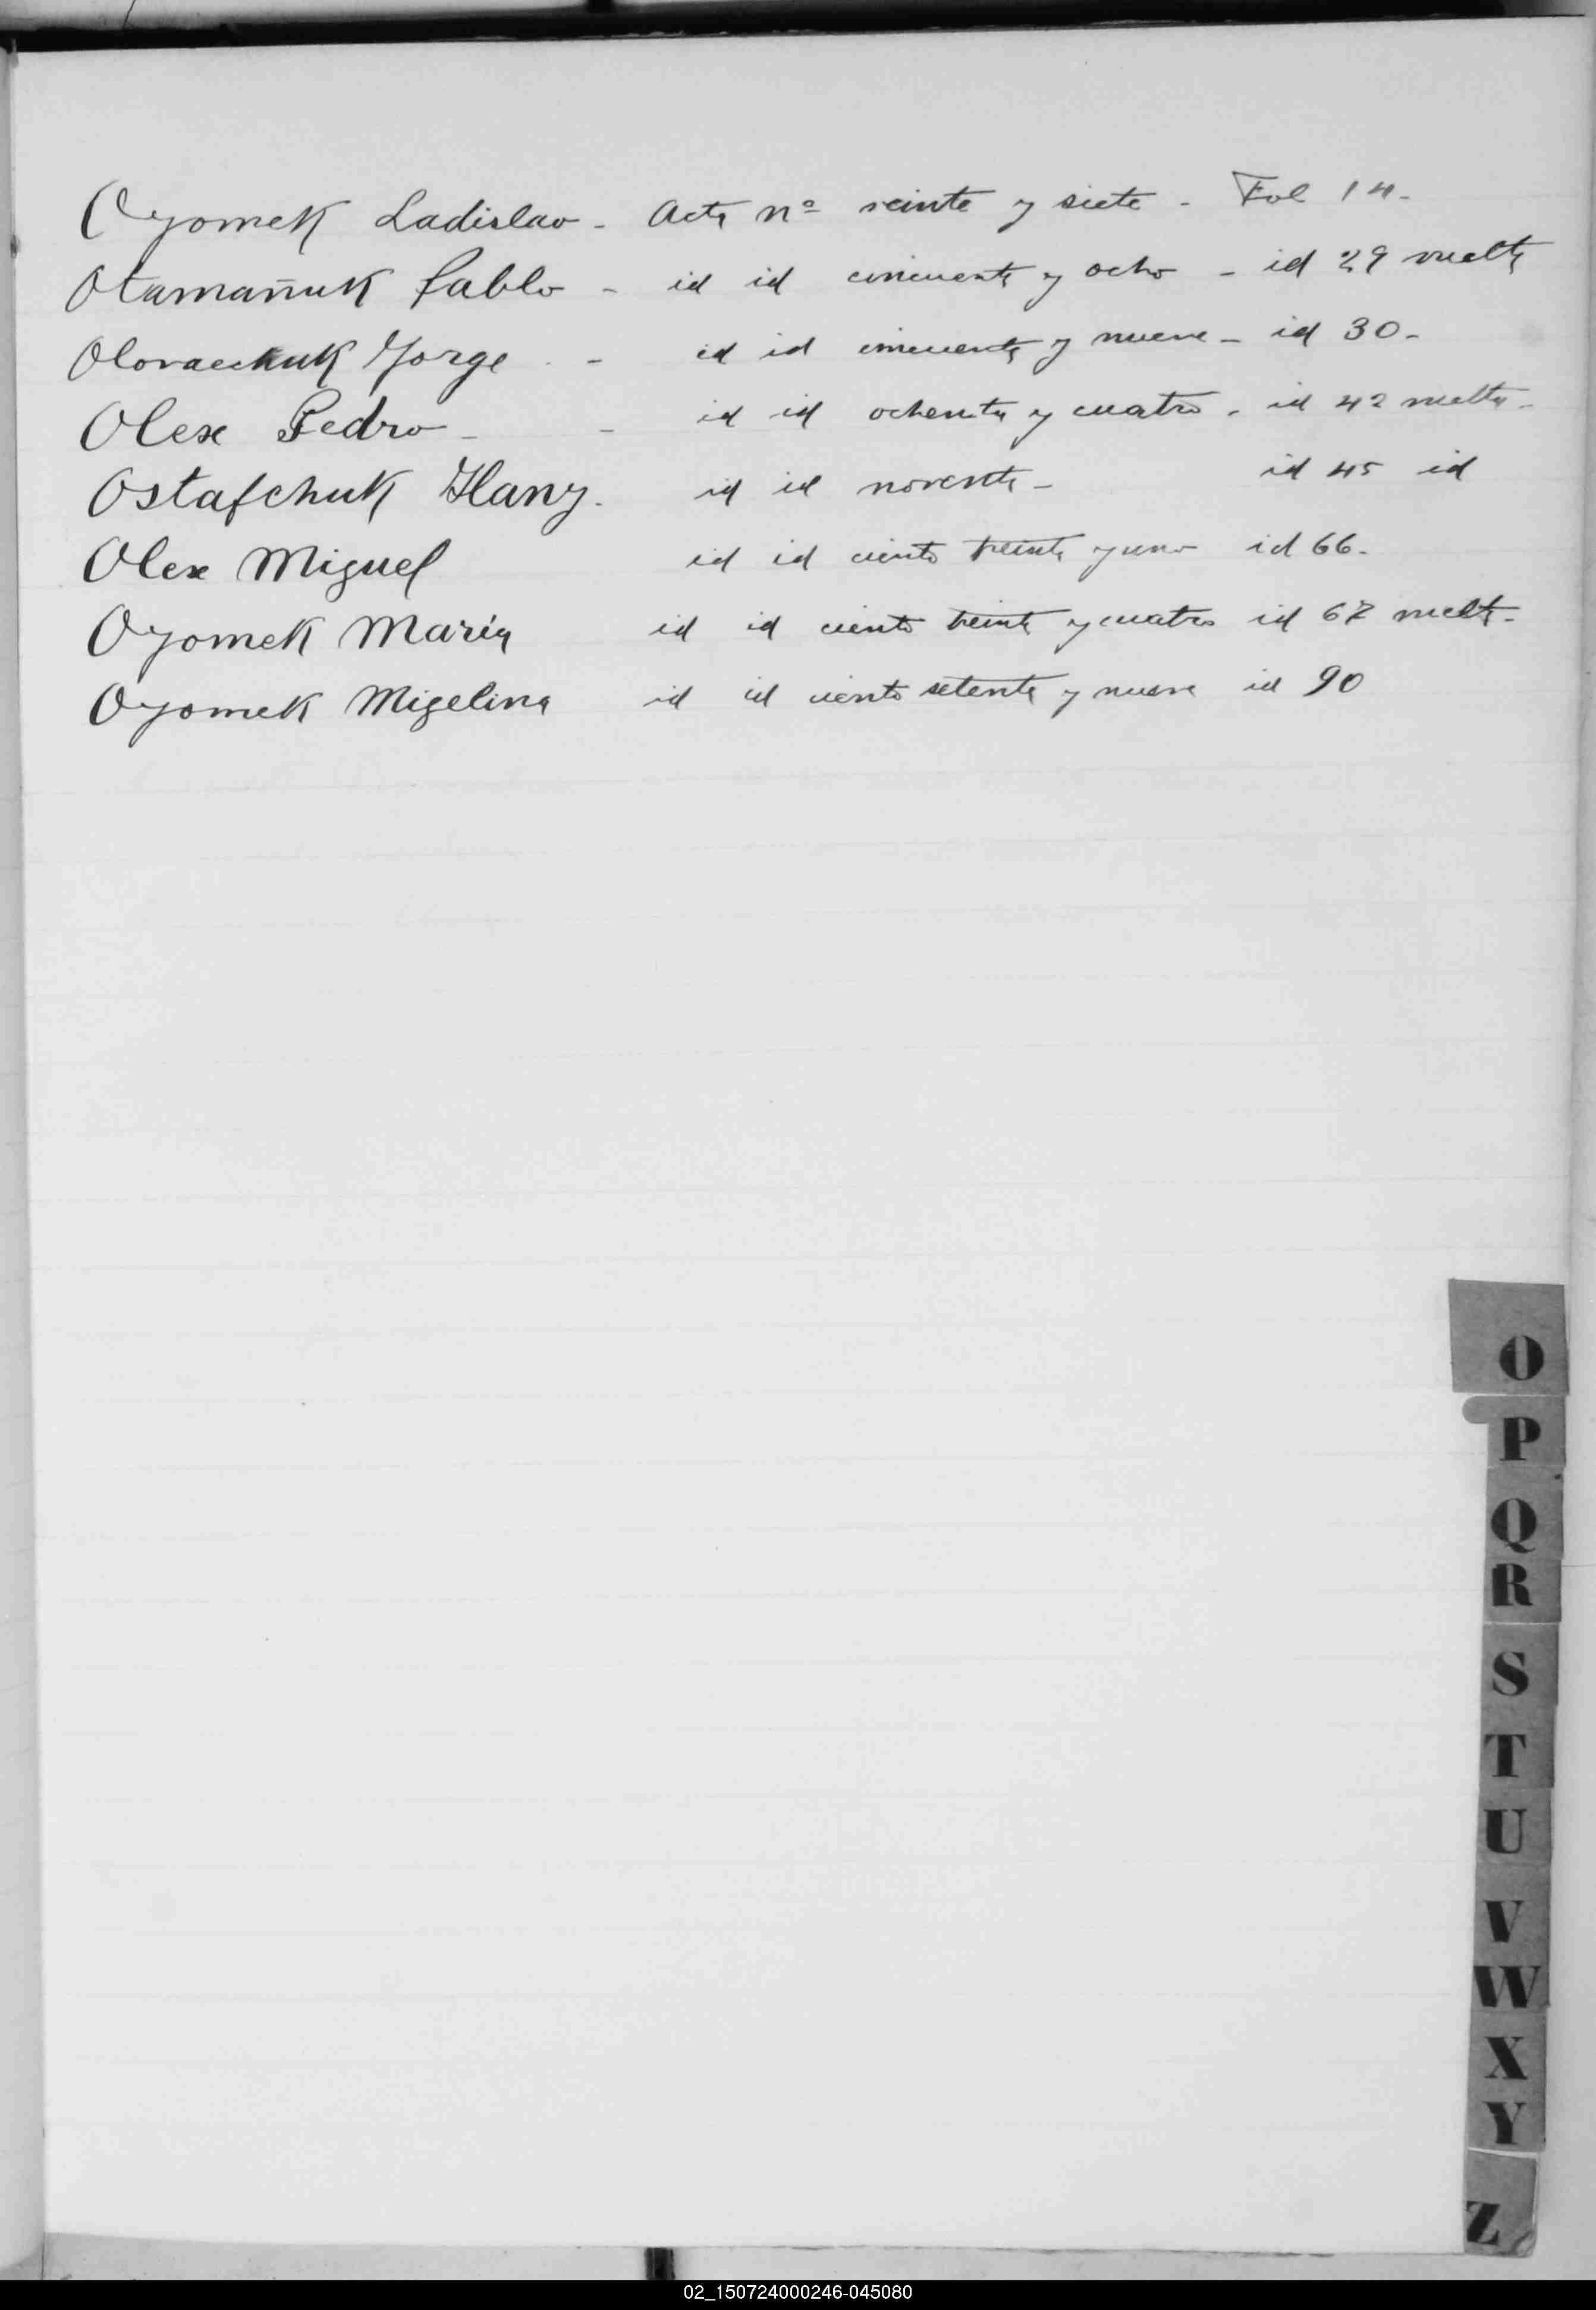 Oyomek Ladislao - Acta nº veinte y siete - Fol 14.
Otamañuk Pablo - id id cincuenta y ocho - id 29 vuelta
Olovaechuk Jorge - id id cincuenta y nueve - id 30.
Olex Pedro - - id id ochenta y cuatro - id 42 vuelta -
Ostafchuk Hany. id id noventa - id 45 id
Olex Miguel id id ciento treinta y uno id 66.
Oyomek María id id ciento treinta y cuatro id 67 vuelta -
Oyomek Migelina id id ciento setenta y nueve id 90
O
P
Q
R
S
T
U
V
W
X
Y
Z
02_150724000246-045080